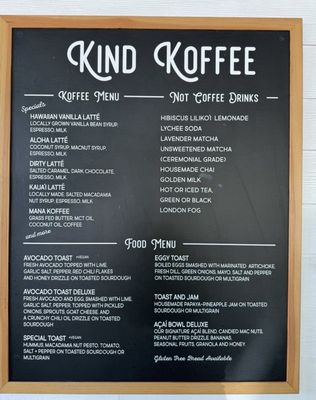 KIND KOFFEE
KOFFEE MENU
Specials
HAWAIIAN VANILLA LATTÉ
LOCALLY GROWN VANILLA BEAN SYRUP,
ESPRESSO, MILK
ALOHA LATTÉ
COCONUT SYRUP, MACNUT SYRUP,
ESPRESSO, MILK
DIRTY LATTÉ
SALTED CARAMEL, DARK CHOCOLATE,
ESPRESSO, MILK
KAUA'I LATTÉ
LOCALLY MADE, SALTED MACADAMIA
NUT SYRUP, ESPRESSO, MILK
MANA KOFFEE
GRASS FED BUTTER, MCT OIL,
COCONUT OIL, COFFEE
and more
NOT COFFEE DRINKS
HIBISCUS LILIKO'I LEMONADE
LYCHEE SODA
LAVENDER MATCHA
UNSWEETENED MATCHA
(CEREMONIAL GRADE)
HOUSEMADE CHAI
GOLDEN MILK
HOT OR ICED TEA,
GREEN OR BLACK
LONDON FOG
FOOD MENU
AVOCADO TOAST *VEGAN
FRESH AVOCADO TOPPED WITH LIME,
GARLIC SALT, PEPPER, RED CHILI FLAKES
AND HONEY DRIZZLE ON TOASTED SOURDOUGH
AVOCADO TOAST DELUXE
FRESH AVOCADO AND EGG, SMASHED WITH LIME,
GARLIC SALT, PEPPER. TOPPED WITH PICKLED
ONIONS, SPROUTS, GOAT CHEESE, AND
A CRUNCHY CHILI OIL DRIZZLE ON TOASTED
SOURDOUGH
SPECIAL TOAST *VEGAN
HUMMUS, MACADAMIA NUT PESTO, TOMATO,
SALT + PEPPER ON TOASTED SOURDOUGH OR
MULTIGRAIN
EGGY TOAST
BOILED EGGS SMASHED WITH MARINATED ARTICHOKE,
FRESH DILL, GREEN ONIONS, MAYO, SALT AND PEPPER
ON TOASTED SOURDOUGH OR MULTIGRAIN
TOAST AND JAM
HOUSEMADE PAPAYA-PINEAPPLE JAM ON TOASTED
SOURDOUGH OR MULTIGRAIN
AÇAÍ BOWL DELUXE
OUR SIGNATURE AÇAÍ BLEND, CANDIED MAC NUTS,
PEANUT BUTTER DRIZZLE, BANANAS,
SEASONAL FRUITS, GRANOLA AND HONEY.
Gluten Free Bread Available